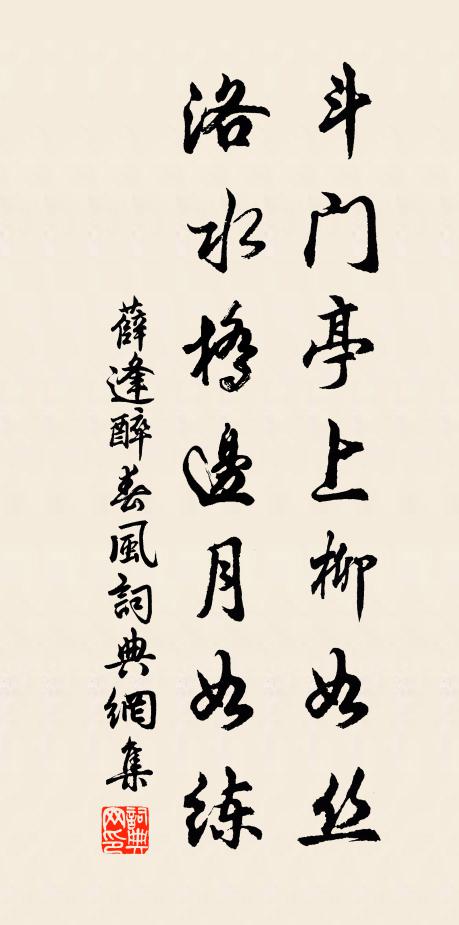 斗门亭上柳如丝
洛水橋邊月如练
薛逢醉春風詞典網集
詞典
网印